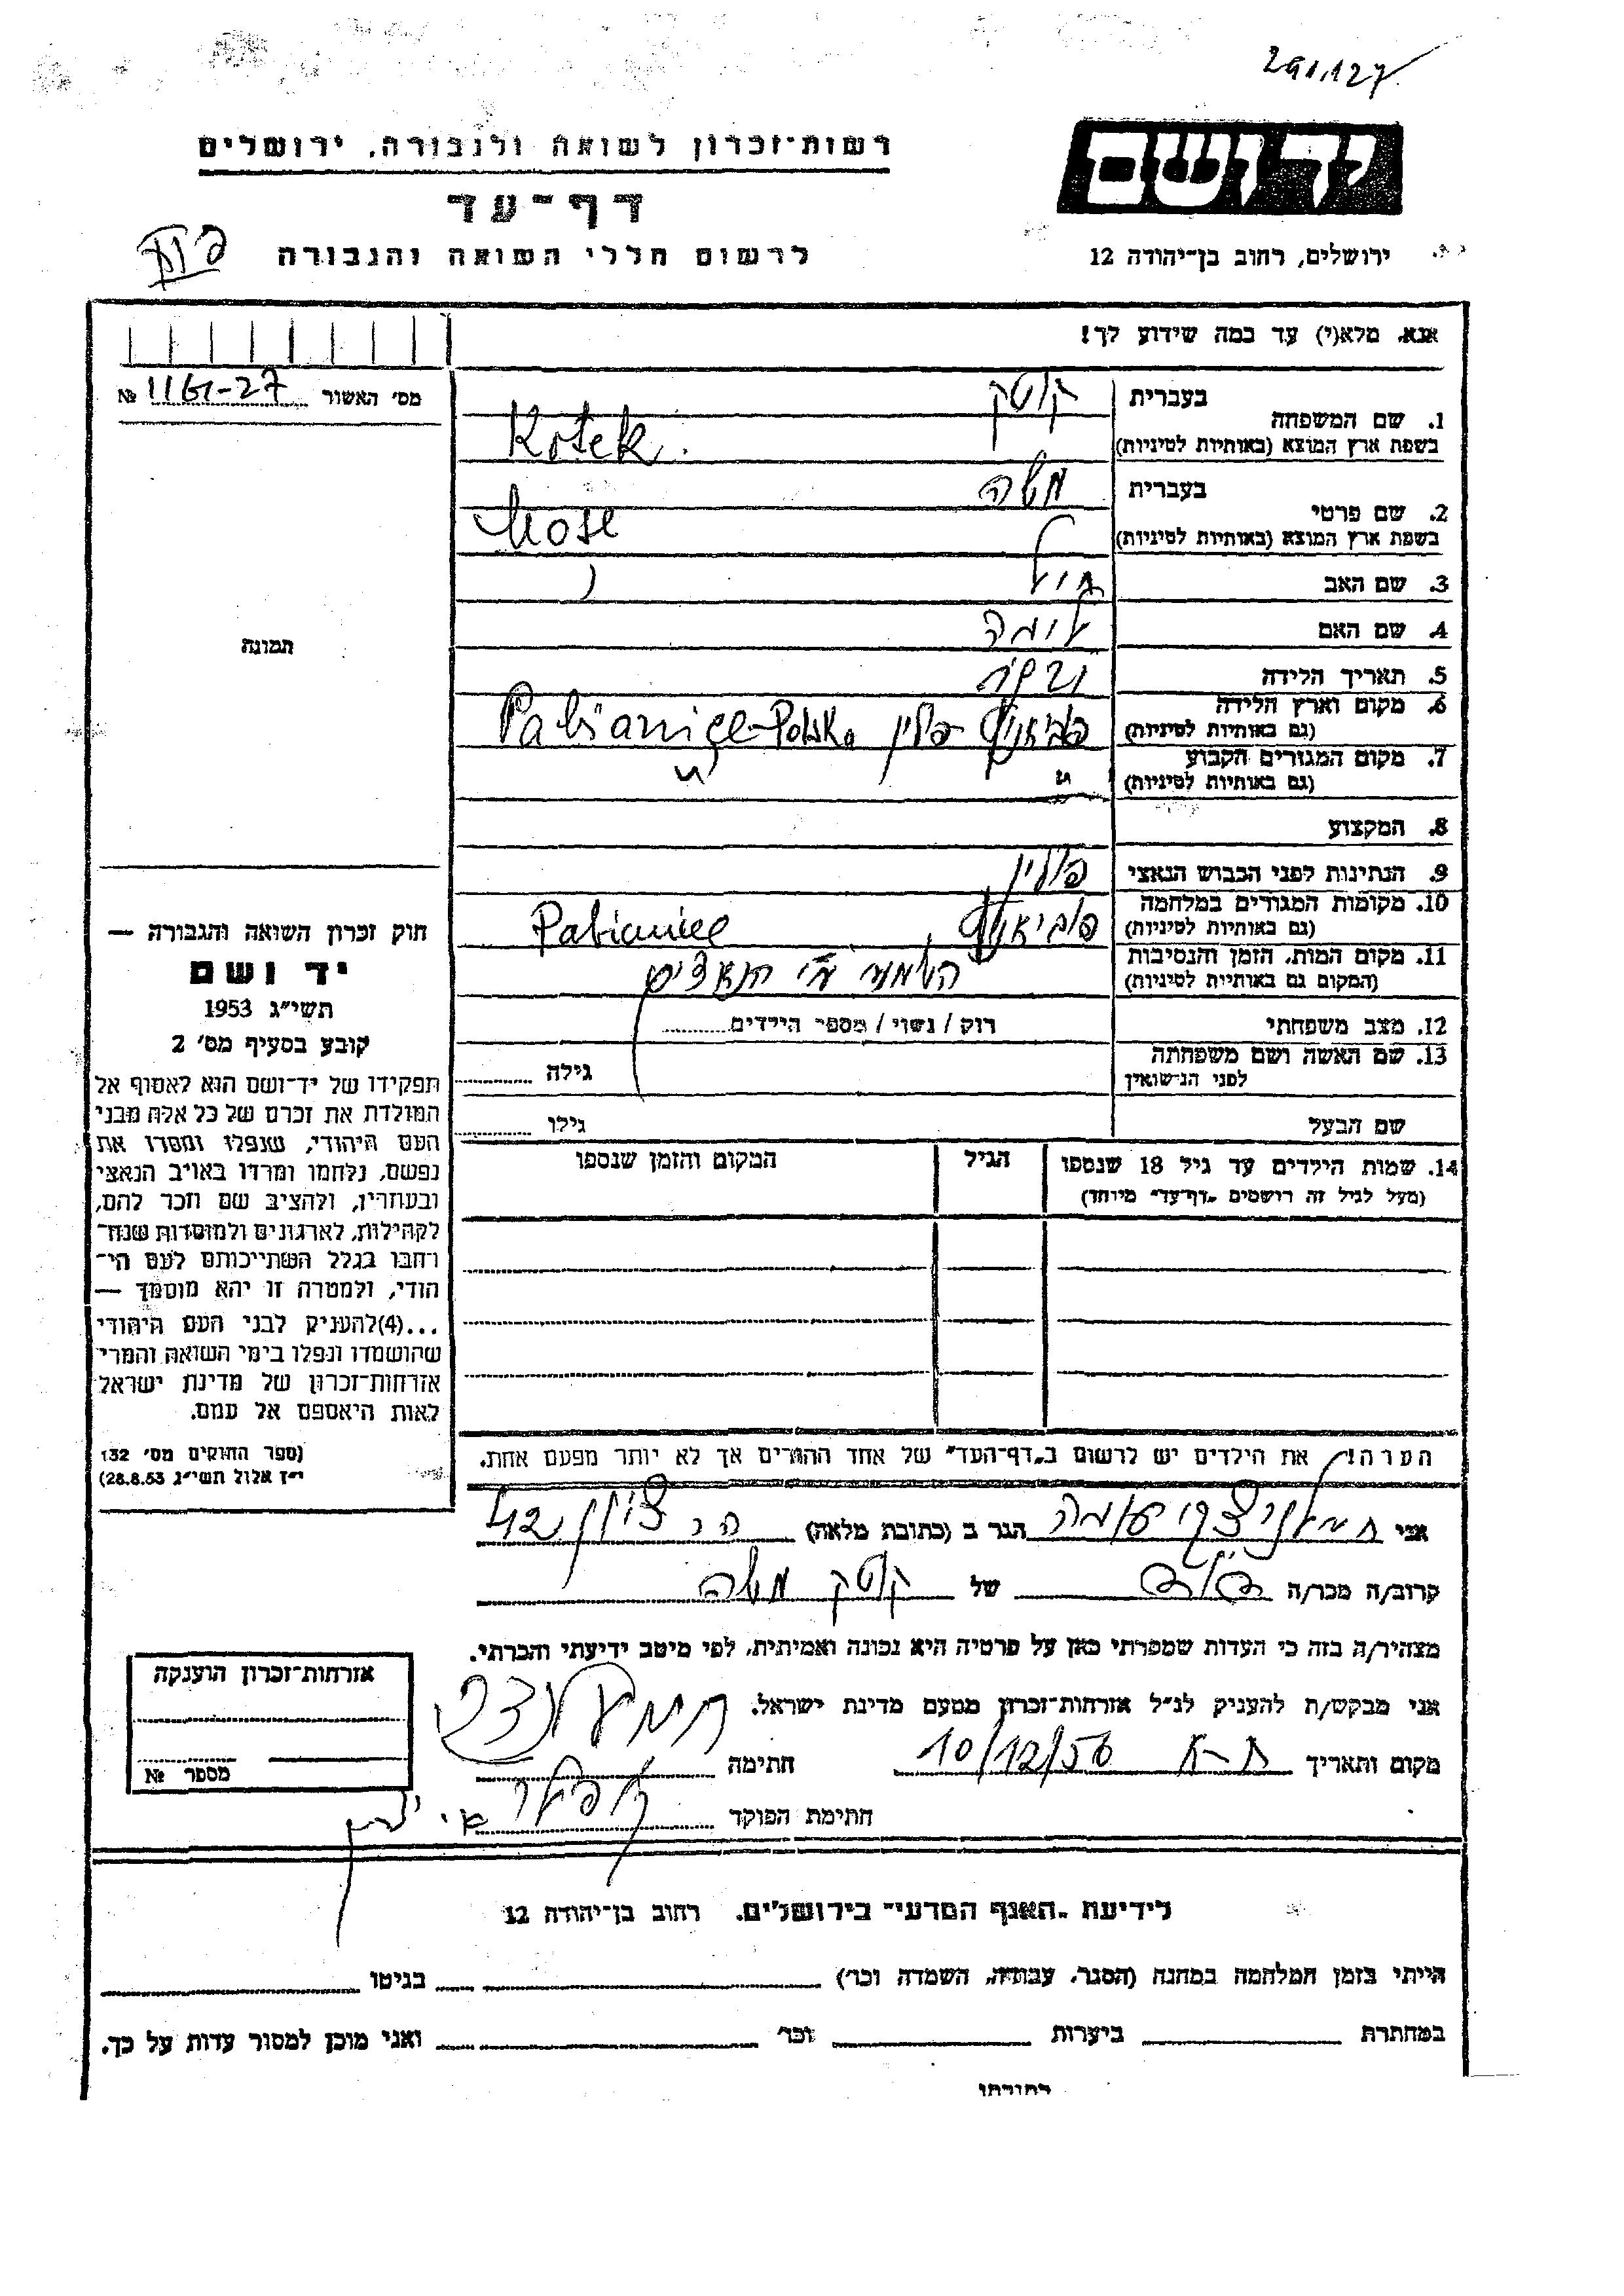 291.127
רשות-זכרון לשואה ולגבורה, ירושלים
יד ושם
דף-עד
לרשום חללי השואה והגבורה
ירושלים, רחוב בן-יהודה 12
אנא, מלא(י) עד כמה שידוע לך!
מס' האשור № 1161-27
1. שם המשפחה בעברית קוטק
בשפת ארץ המוצא (באותיות לטיניות) Kotek
2. שם פרטי בעברית משה
בשפת ארץ המוצא (באותיות לטיניות) Mose
3. שם האב
4. שם האם
5. תאריך הלידה
6. מקום וארץ הלידה (גם באותיות לטיניות) פביאניץ פולין Pabianice-Polska
7. מקום המגורים הקבוע (גם באותיות לטיניות) " "
8. המקצוע
9. הנתינות לפני הכבוש הנאצי פולין
10. מקומות המגורים במלחמה (גם באותיות לטיניות) פביאניץ, Pabianice
11. מקום המות, הזמן והנסיבות (המקום גם באותיות לטיניות) ע"י
12. מצב משפחתי רוק / נשוי / מספר הילדים
13. שם האשה ושם משפחתה לפני הנישואין גילה
שם הבעל גילו
14. שמות הילדים עד גיל 18 שנספו (מעל לגיל זה רושמים "דף-עד" מיוחד) הגיל המקום והזמן שנספו
תמונה
חוק זכרון השואה והגבורה —
יד ושם
תשי"ג 1953
קובע בסעיף מס' 2
תפקידו של יד-ושם הוא לאסוף אל
המולדת את זכרם של כל אלה מבני
העם היהודי, שנפלו ומסרו את
נפשם, נלחמו ומרדו באויב הנאצי
ובעוזריו, ולהציב שם וזכר להם,
לקהילות, לארגונים ולמוסדות שנח-
רחבו בגלל השתייכותם לעם הי-
הודי, ולמטרה זו יהא מוסמך —
...(4)להעניק לבני העם היהודי
שהושמדו ונפלו בימי השואה והמרי
אזרחות-זכרון של מדינת ישראל
לאות היאספם אל עמם.
(ספר החוקים מס' 132
י"ז אלול תשי"ג 28.8.53)
הערה: את הילדים יש לרשום ב"דף-העד" של אחד ההורים אך לא יותר מפעם אחת.
אני הגר ב (כתובת מלאה) הר ציון 42
קרוב/ה מכר/ה של קוטק משה
מצהיר/ה בזה כי העדות שמסרתי כאן על פרטיה היא נכונה ואמיתית, לפי מיטב ידיעתי והכרתי.
אני מבקש/ת להעניק לנ"ל אזרחות-זכרון מטעם מדינת ישראל.
מקום ותאריך ת-א 10/12/56 חתימה
חתימת הפוקד
אזרחות-זכרון הוענקה
מספר №
לידיעת "האגף המדעי" בירושלים. רחוב בן-יהודה 12
הייתי בזמן המלחמה במחנה (הסגר, עבודה, השמדה וכו') בגיטו
במחתרת ביערות וכו' ואני מוכן למסור עדות על כך.